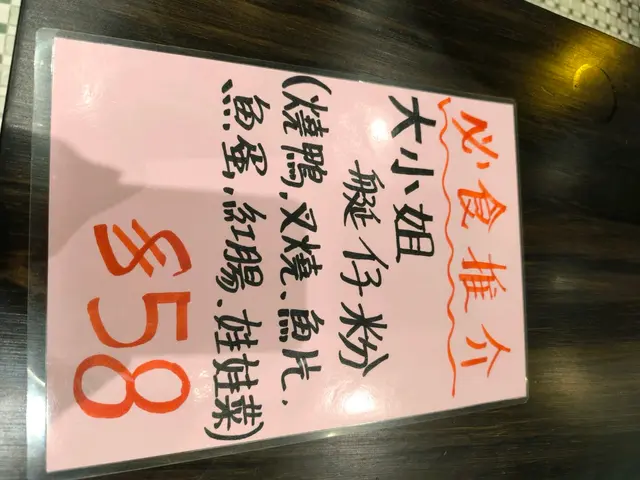 必食推介
大小姐
艇仔粉
(燒鴨,叉燒、魚片、
魚蛋,紅腸、娃娃菜)
$58